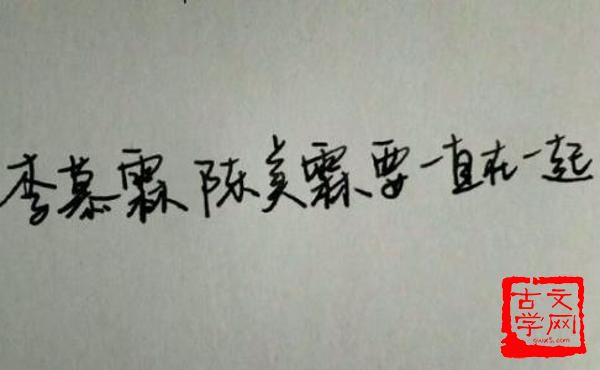 李慕霖陈贞霖要一直在一起
古文
学网
gwx5.com